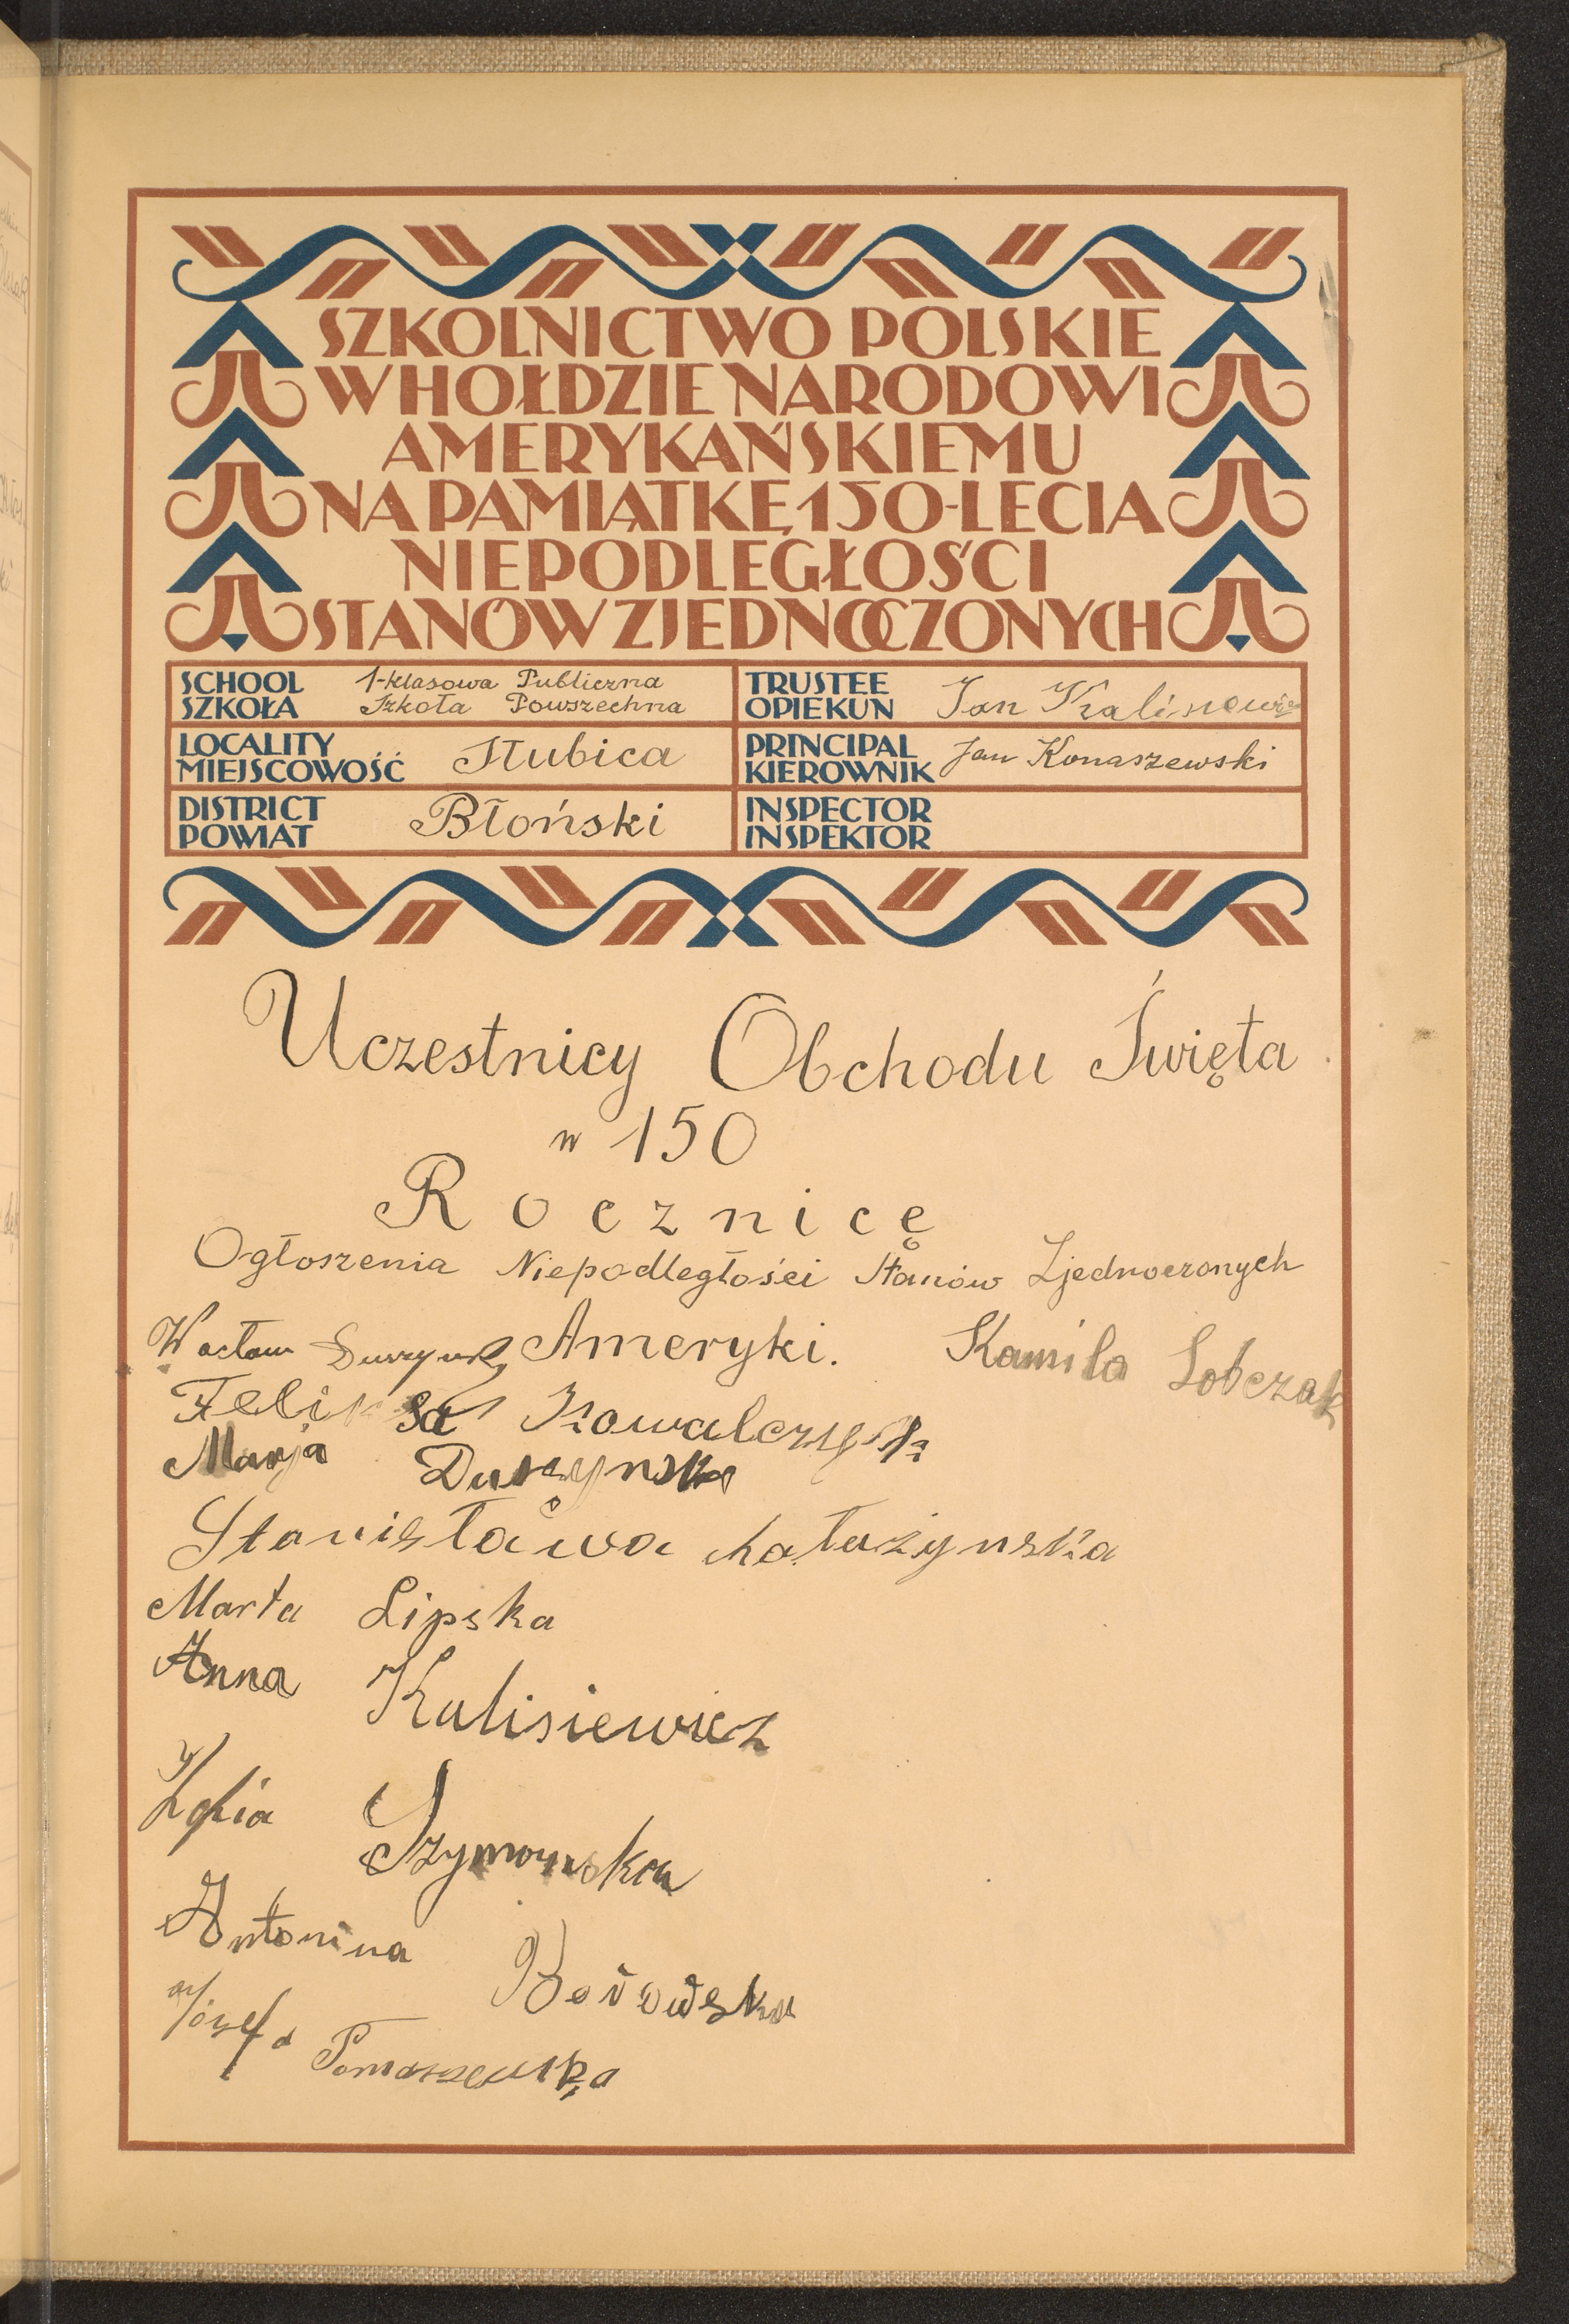 SZKOLNICTWO POLSKIE
W HOŁDZIE NARODOWI
AMERYKAŃSKIEMU
NA PAMIĄTKĘ 150-LECIA
NIEPODLEGŁOŚCI
STANÓW ZJEDNOCZONYCH
SCHOOL
SZKOŁA
1-klasowa Publiczna
Szkoła Powszechna
TRUSTEE
OPIEKUN
Jan
LOCALITY
MIEJSCOWOŚĆ
Stubica
PRINCIPAL
KIEROWNIK
Jan Konaszewski
DISTRICT
POWIAT
Błoński
INSPECTOR
INSPEKTOR
Uczestnicy Obchodu Święta
w 150
Rocznicę
Ogłoszenia Niepodległości Stanów Zjednoczonych
Ameryki.
Wacław
Kamila Sobczak
Feliksa Kowalczyk
Marja Duszynska
Stanisława
Marta Lipska
Anna Kalisiewicz
Zofia Szymańska
Antonina Borowska
Józefa Tomaszewska